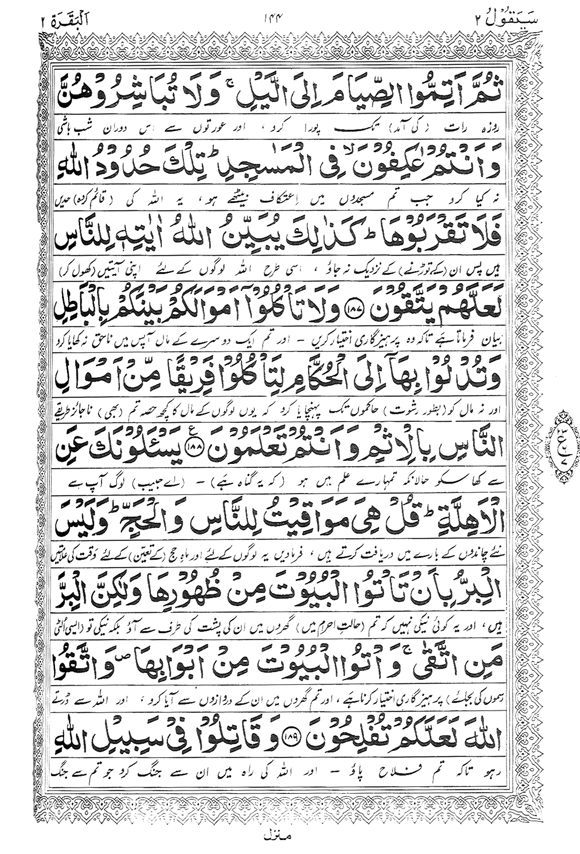 سَيَقُوْلُ ۲ ۱۴۴ اَلْبَقَرَة ۲
ثُمَّ اَتِمُّوا الصِّيَامَ اِلَى الَّيْلِ ۚ وَلَا تُبَاشِرُوْهُنَّ
روزہ رات (کی آمد) تک پورا کرو، اور عورتوں سے اس دوران شب باشی
وَاَنْتُمْ عٰكِفُوْنَ ۙ فِی الْمَسٰجِدِ ؕ تِلْكَ حُدُوْدُ اللّٰهِ
نہ کیا کرو جب تم مسجدوں میں اعتکاف بیٹھے ہو، یہ اللہ کی (قائم کردہ) حدیں
فَلَا تَقْرَبُوْهَا ؕ كَذٰلِكَ يُبَيِّنُ اللّٰهُ اٰيٰتِهٖ لِلنَّاسِ
ہیں پس ان (کے توڑنے) کے نزدیک نہ جاؤ، اسی طرح اللہ لوگوں کے لئے اپنی آیتیں (کھول کر)
لَعَلَّهُمْ يَتَّقُوْنَ ﴿۱۸۷﴾ وَلَا تَاْكُلُوْۤا اَمْوَالَكُمْ بَيْنَكُمْ بِالْبَاطِلِ
بیان فرماتا ہے تاکہ وہ پرہیزگاری اختیار کریں - اور تم ایک دوسرے کے مال آپس میں ناحق نہ کھایا کرو
وَتُدْلُوْا بِهَاۤ اِلَى الْحُكَّامِ لِتَاْكُلُوْا فَرِيْقًا مِّنْ اَمْوَالِ
اور نہ مال کو (بطورِ رشوت) حاکموں تک پہنچایا کرو کہ یوں لوگوں کے مال کا کچھ حصہ تم (بھی) ناجائز طریقے
النَّاسِ بِالْاِثْمِ وَاَنْتُمْ تَعْلَمُوْنَ ﴿۱۸۸﴾ ع يَسْـَٔلُوْنَكَ عَنِ
سے کھا سکو حالانکہ تمہارے علم میں ہو (کہ یہ گناہ ہے) - (اے حبیب) لوگ آپ سے
الْاَهِلَّةِ ؕ قُلْ هِیَ مَوَاقِيْتُ لِلنَّاسِ وَالْحَجِّ ؕ وَلَيْسَ
نئے چاندوں کے بارے میں دریافت کرتے ہیں، فرما دیں یہ لوگوں کے لئے اور ماہِ حج (کے تعین) کے لئے وقت کی علامتیں
الْبِرُّ بِاَنْ تَاْتُوا الْبُيُوْتَ مِنْ ظُهُوْرِهَا وَلٰكِنَّ الْبِرَّ
ہیں، اور یہ کوئی نیکی نہیں کہ تم (حالتِ احرام میں) گھروں میں ان کی پشت کی طرف سے آؤ بلکہ نیکی تو (ایسی الٹی
مَنِ اتَّقٰی ۚ وَاْتُوا الْبُيُوْتَ مِنْ اَبْوَابِهَا ۪ وَاتَّقُوا
رسموں کی بجائے) پرہیزگاری اختیار کرنا ہے، اور تم گھروں میں ان کے دروازوں سے آیا کرو، اور اللہ سے ڈرتے
اللّٰهَ لَعَلَّكُمْ تُفْلِحُوْنَ ﴿۱۸۹﴾ وَقَاتِلُوْا فِیْ سَبِيْلِ اللّٰهِ
رہو تاکہ تم فلاح پاؤ - اور اللہ کی راہ میں ان سے جنگ کرو جو تم سے جنگ
منزل